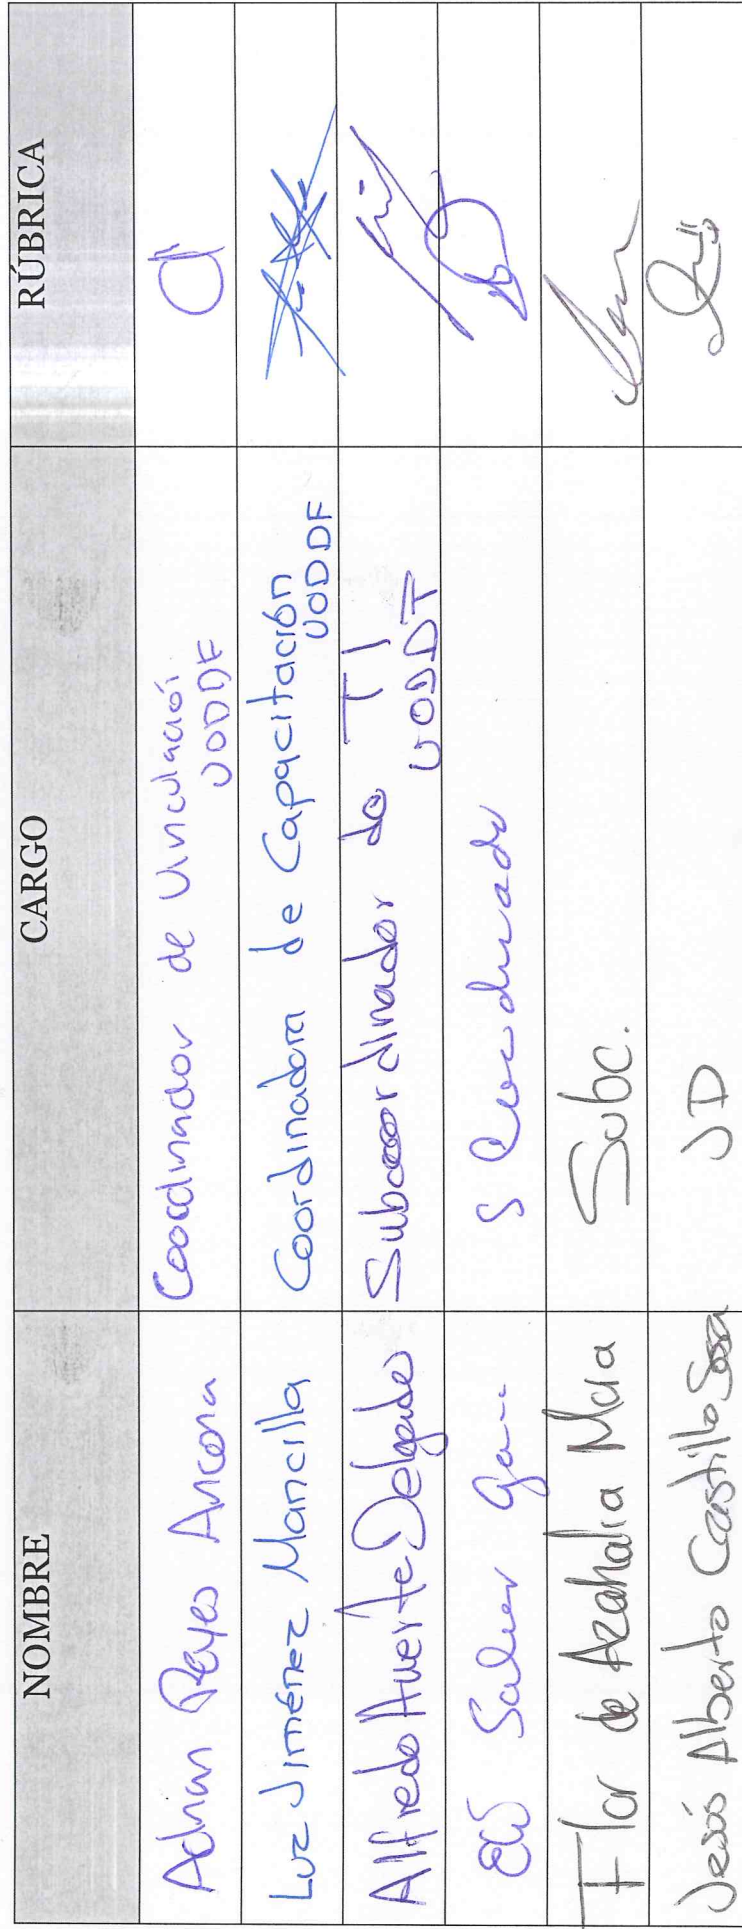 NOMBRE CARGO RÚBRICA
Adrian Reyes Ancona Coordinador de Vinculació
UODDF
Luz Jiménez Mancilla Coordinadora de Capacitación
UODDF
Alfredo Huerta Delgado Subcoordinador de TI
UODDT
Flor de Azahalia Mcia Subc.
Jesús Alberto Castillo Sosa JD